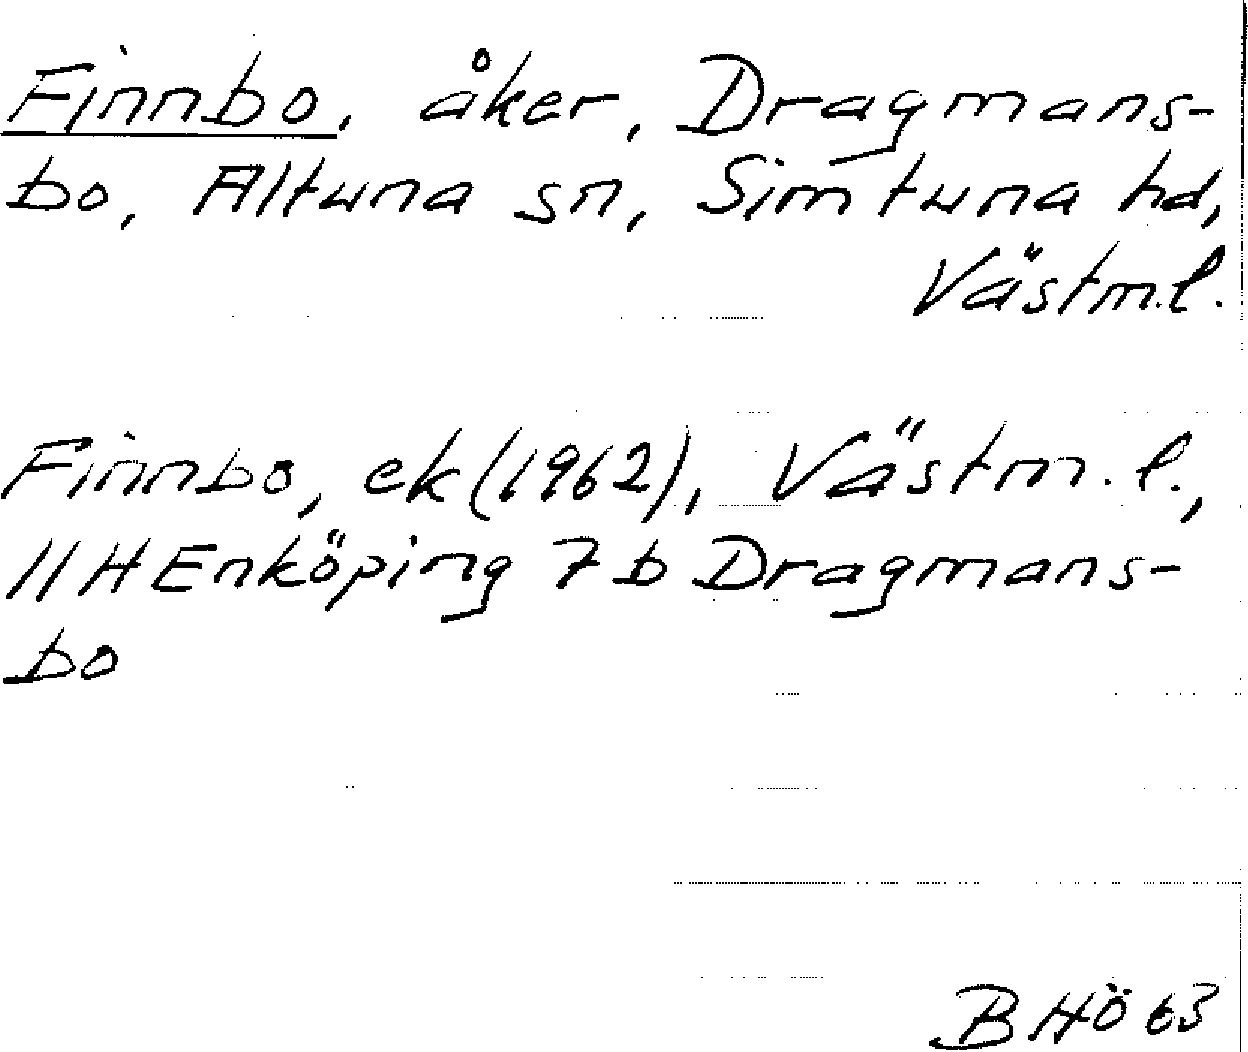 Finnbo, åker, Dragmans-
bo, Altuna sn, Simtuna hd,
Västm.l.
Finnbo, ek (1962), Västm.l.,
11H Enköping 7b Dragmans-
bo
B Hö 63